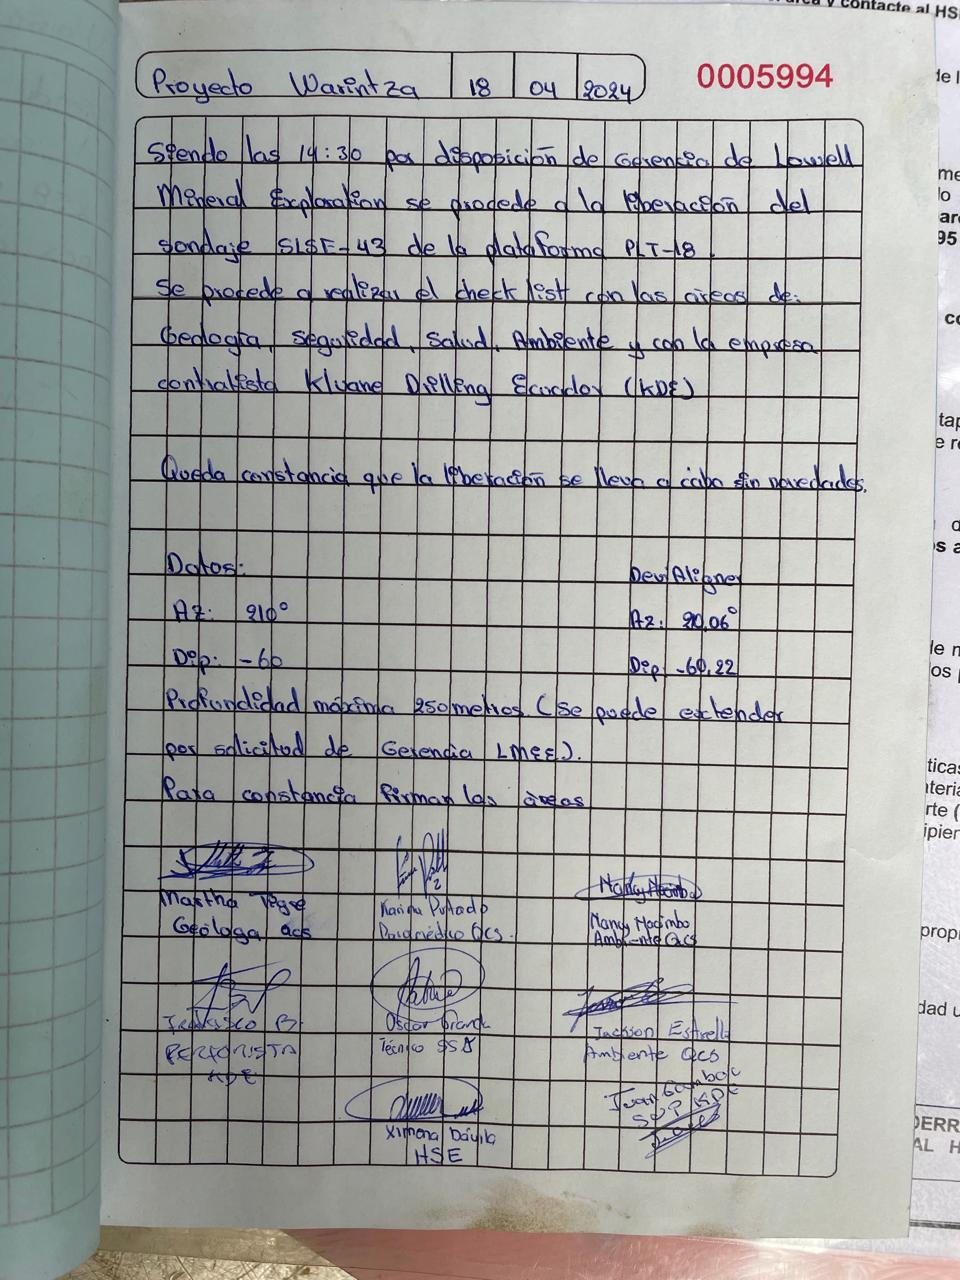 Proyecto Warintza 18 04 2024 0005994
Siendo las 14:30 por disposición de Gerencia de Lowell
Mineral Exploration se procede a la liberación del
sondaje SLSE-43 de la plataforma PLT-18.
Se procede a realizar el check list con las áreas de:
Geología, seguridad, Salud, Ambiente y con la empresa
contratista Kluane Drilling Ecuador (KDE)
Queda constancia que la liberación se lleva a cabo sin novedades.
Datos: Devi Aligner
Az: 210° Az: 210,06°
Dip: -60 Dip: -60,22
Profundidad máxima 250 metros. (Se puede extender
por solicitud de Gerencia LMEE).
Para constancia firman las áreas
Nancy Macimbo
Martha Karina Nancy Macimbo
Geóloga QCS Paramédico QCS. Ambiente QCS
Francisco B. Oscar Jackson Estrella
PERFORISTA KDE Técnico SSA Ambiente QCS
Juan Gamboa
SUP KDE
Ximena Dávila
HSE
y contacte al HS
95
tap
d
DERR
AL H